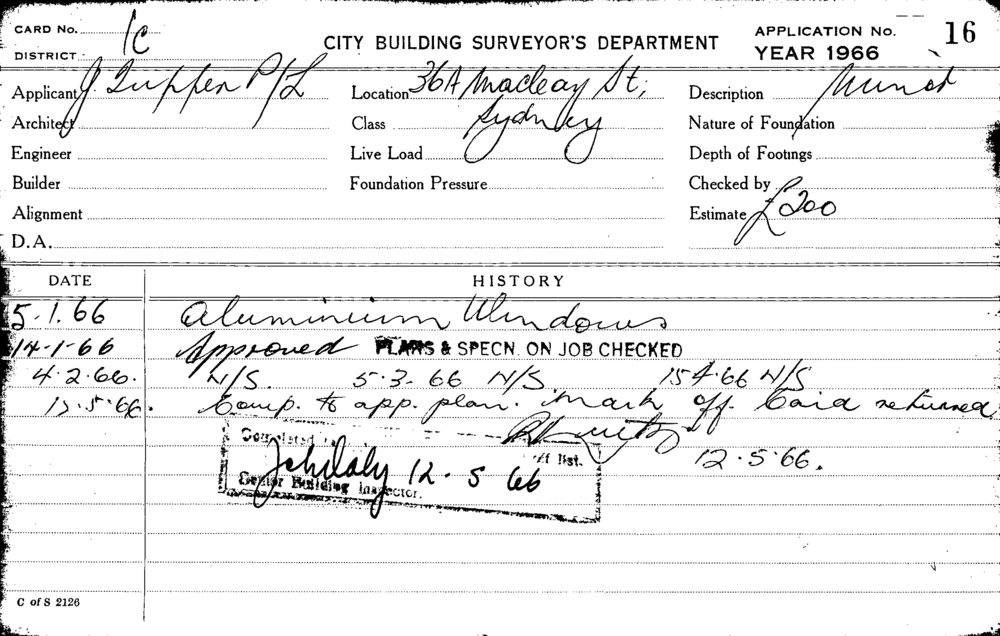 CARD No.
1c
CITY BUILDING SURVEYOR'S DEPARTMENT
APPLICATION No. 16
DISTRICT
YEAR 1966
Applicant J. Tupper P/L
Location 36A Macleay St,
Description
Architect
Class Sydney
Nature of Foundation
Engineer
Live Load
Depth of Footings
Builder
Foundation Pressure
Checked by
Alignment
Estimate £200
D.A.
DATE
HISTORY
5.1.66 Aluminium Windows
14-1-66 Approved PLANS & SPECN. ON JOB CHECKED
4.2.66. N/S. 5-3-66 N/S. 15 4.66 N/S
12.5.66. Comp. to app. plan. Mark off. Card returned
Completed
off list.
12.5.66.
12.5 66
Senior Building Inspector.
C of S 2126